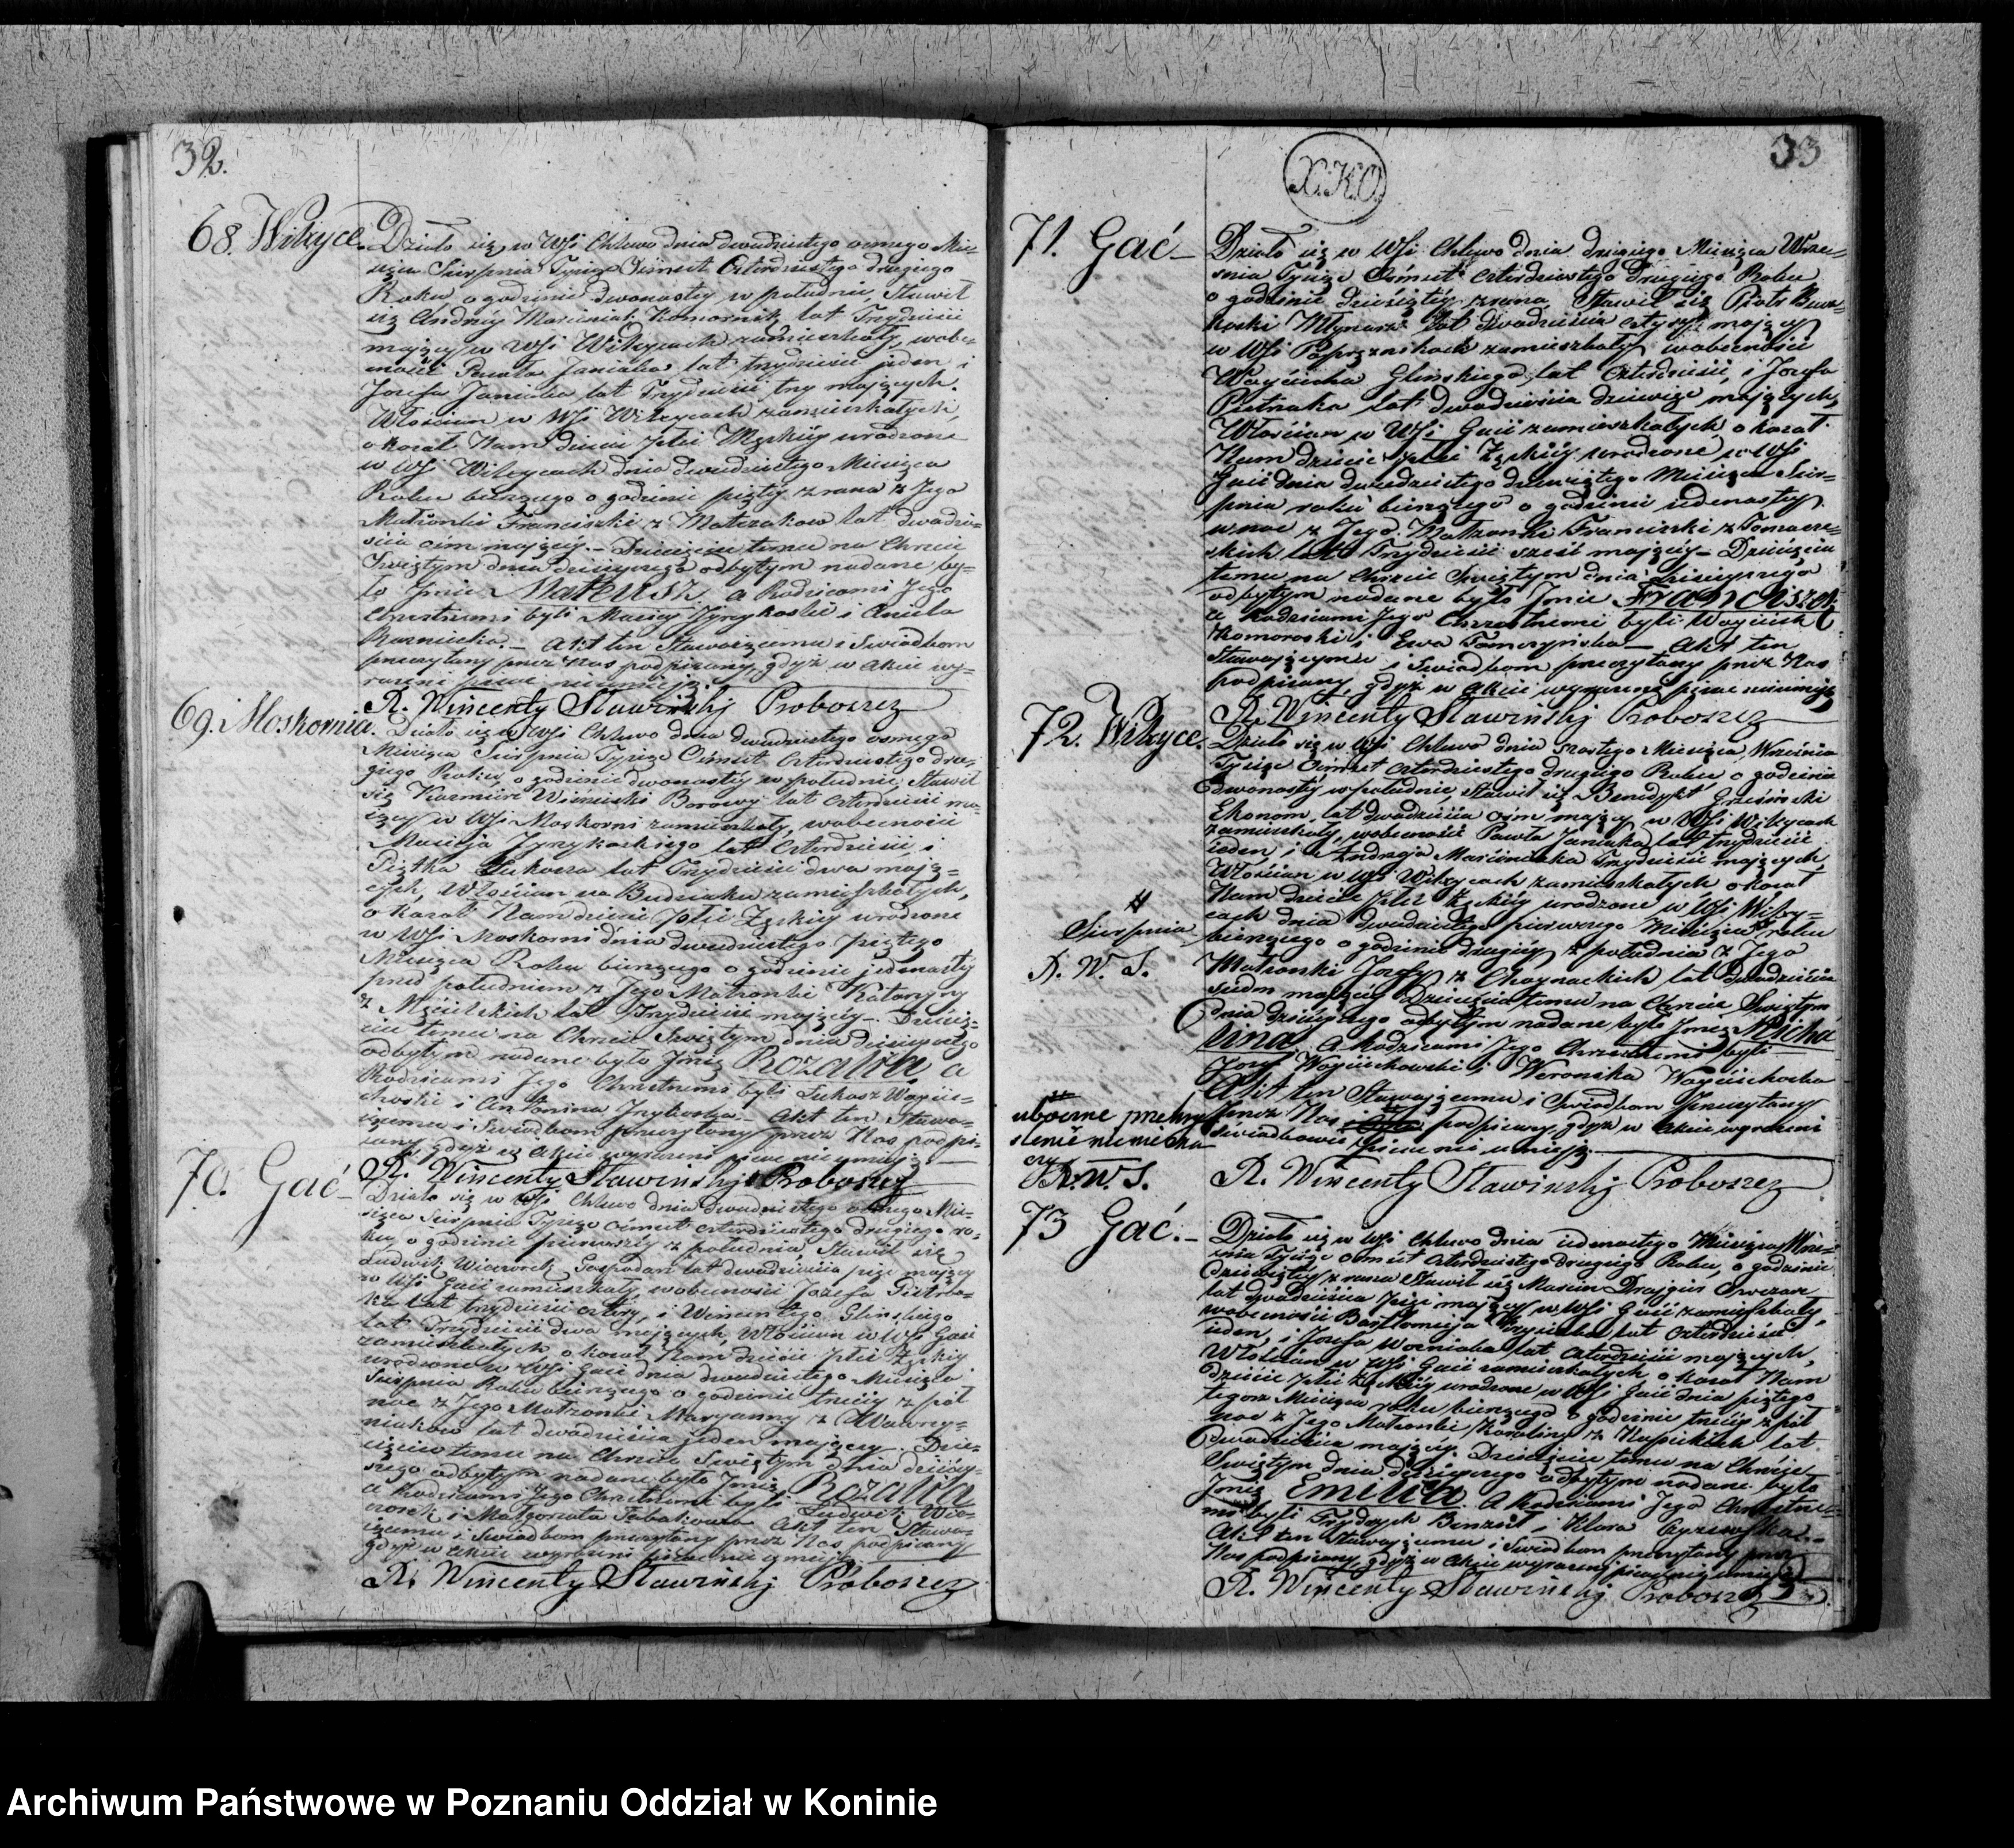 32.
68. Wilczyce.
Działo się w Wsi Chlewo dnia dwudziestego osmego Mie-
siąca Sierpnia Tysiąc Ośmset Czterdziestego drugiego
Roku o godzinie dwonastey w południe, Stawił
się Andrzey Marciniak Komornik lat Trzydzieści
maiący w Wsi Wilczycach zamieszkały, wobec-
ności Pawła Janiaka lat trzydzieści jeden i
Jozefa Janiaka lat Trzydzieści trzy maiących,
Włościan w Wsi Wilczycach zamieszkałych,
okazał Nam dziecie płci Męzkiéy urodzone
w Wsi Wilczycach dnia dwudziestego Miesiąca
Roku bieżącego o godzinie piątéy z rana z Jego
Małżonki Franciszki z Matczakow lat dwadzie-
ścia ośm maiącéy. – Dziecięciu temu na Chrzcie
Swiętym dnia dzisieyszego odbytym nadane by-
ło Jmie Mateusz a Rodzicami Jego
Chrzestnemi byli Maciey i Aniela
Akt ten Stawaiącemu i Swiadkom
przeczytany przez Nas podpisany, gdyż w akcie wy-
rażeni pisać nieumieją.
X. Wincenty Sławiński Proboszcz
69. Moskornia.
Działo się w Wsi Chlewo dnia dwudziestego osmego
Miesiąca Sierpnia Tysiąc Ośmset Czterdziestego dru-
giego Roku, o godzinie dwonastey w południe, Stawił
się Kazmierz Wiśniewski Borowy lat Czterdzieści ma-
iący w Wsi Moskorni zamieszkały, wobecności
Macieja lat Czterdzieści, i
Piętka Łukasza lat Trzydzieści dwa maią-
cych, Włościan na Budziaku zamieszkałych,
okazał Nam dziecie płci Zęzkiéy urodzone
w Wsi Moskorni dnia dwudziestego piątego
Miesiąca Roku bieżącego o godzinie jedenastéy
przed południem z Jego Małżonki Katarzyny
z lat Trzydzieści maiącéy. Dziecię-
ciu temu na Chrzcie Swiętym dnia dzisieyszego
odbytym nadane było Jmie Rozalia a
Rodzicami Jego Chrzestnemi byli Łukasz Woycie-
choski i Antonina Akt ten Stawa-
iącemu i Swiadkom przeczytany przez Nas podpi-
sany, gdyż w Akcie wyrażeni pisać nie umieją.
X. Wincenty Sławiński Proboszcz
70. Gać –
Działo się w Wsi Chlewo dnia dwudziestego osmego Mie-
siąca Sierpnia Tysiąc ośmset czterdziestego drugiego ro-
ku, o godzinie pierwszéy z południa, Stawił się
Ludwik Wieczorek Gospodarz lat dwadzieścia pięć maiący
w Wsi Gaci zamieszkały, wobecności Józefa Pietrza-
ka lat trzydzieści cztery, i Wincentego Glinskiego
lat Trzydzieści dwa maiących, Włościan w Wsi Gaci
zamieszkałych, okazał Nam dziecie płci Zęzkiéy
urodzone w Wsi Gaci dnia dwudziestego Miesiąca
Sierpnia Roku bieżącego o godzinie trzeciéy z pół
noc z Jego Małżonki Maryanny z Wawrzy-
niakow lat dwadzieścia jeden maiącéy. Dzie-
cięciu temu na Chrzcie Swiętym dnia dzisiéy-
szego odbytym nadane było Jmie Rozalia
a Rodzicami Jego Chrzestnemi byli Ludwik Wie-
czorek i Małgorzata Akt ten Stawa-
iącemu i Swiadkom przeczytany przez Nas podpisany
gdyż w Akcie wyrażeni pisać nie umieją.
X. Wincenty Sławiński Proboszcz
X.K.O.
33
71. Gać –
Działo się w Wsi Chlewo dnia drugiego Miesiąca Wrze-
śnia Tysiąc Ośmset Czterdziestego Drugiego Roku
o godzinie dziesiątéy z rana, Stawił się Piotr
Młynarz lat dwadzieścia cztery maiący
w Wsi zamieszkały wobecności
Woyciecha Glinskiego lat Czterdzieści, i Jozefa
Pietrzaka lat dwadzieścia dziewięć maiących,
Włościan w Wsi Gaci zamieszkałych, okazał
Nam dziecie płci Zęzkiéy urodzone w Wsi
Gaci dnia dwudziestego dziewiątego Miesiąca Sier-
pnia roku bieżącego o godzinie iedenastéy
w noc z Jego Małżonki Franciszki z Tomasze-
skich lat Trzydzieści sześć maiącéy – Dziecięciu
temu na Chrzcie Swiętym dnia dzisieyszego
odbytym nadane było Jmie
a Rodzicami Jego Chrzestnemi byli Woyciech
Komoroski i Ewa Akt ten
Stawaiącemu i Swiadkom przeczytany przez Nas
podpisany, gdyż w akcie wyrażeni pisać nieumieją
X. Wincenty Sławiński Proboszcz
72. Wilczyce.
Działo się w Wsi Chlewo dnia szostego Miesiąca Września
Tysiąc Ośmset czterdziestego drugiego Roku o godzinie
dwonastéy w południe, stawił się Benedykt
Ekonom, lat dwadzieścia ośm maiący, w Wsi Wilczycach
zamieszkały, wobecności Pawła Janiaka lat trzydzieści
ieden, i Andrzeja Marciniaka Trzydzieści maiących,
Włościan w Wsi Wilczycach zamieszkałych okazał
Nam dziecie płci Zęzkiéy urodzone w Wsi Wilczy-
cach dnia dwudziestego pierwszego Miesiąca # roku
bieżącego o godzinie drugiéy z południa z Jego
Małżonki Jozefy z Choynackich lat dwadzieścia
siedm maiącéy Dziecięciu temu na Chrzcie Swiętym
dnia dzisieyszego odbytym nadane było Jmie Micha
lina. A Rodzicami Jego Chrzestnemi byli
Jozef Woyciechowski i Weronika Woyciechoska
Akt ten Stawaiącemu i Swiadkom przeczytany
przez Nas podpisany, gdyż w Akcie wyrażeni
Swiadkowie pisać nie umieją.
#
Sierpnia
X. W. S.
uboczne przekry
ślenie nieważ
X. W. S.
X. Wincenty Sławiński Proboszcz
73 Gać. –
Działo się w Wsi Chlewo dnia iedenastego Miesiąca Wrze-
śnia Tysiąc ośmset czterdziestego drugiego Roku, o godzinie
dziewiątéy z rana Stawił się Marcin Owczarz
lat dwadzieścia pięć maiący w Wsi Gaci zamieszkały,
wobecności Bartłomieja lat czterdzieści
ieden, i Jozefa Wozniaka lat czterdzieści maiących,
Włościan w Wsi Gaci zamieszkałych, okazał Nam
dziecie płci Zęzkiéy urodzone w Wsi Gaci dnia piątego
tegoż Miesiąca roku bieżącego o godzinie trzeciéy z pół
noc z Jego Małżonki Karoliny z lat
dwadzieścia maiącéy. Dziecięciu temu na Chrzcie
Swiętym dnia dzisieyszego odbytym nadane było
Jmie Emilia. A Rodzicami Jego Chrzestne-
mi byli Frydrych i Klara
Akt ten Stawaiącemu i Swiadkom przeczytany przez
Nas podpisany, gdyż w Akcie wyrażeni pisać nie umieją
X. Wincenty Sławiński Proboszcz
Archiwum Państwowe w Poznaniu Oddział w Koninie